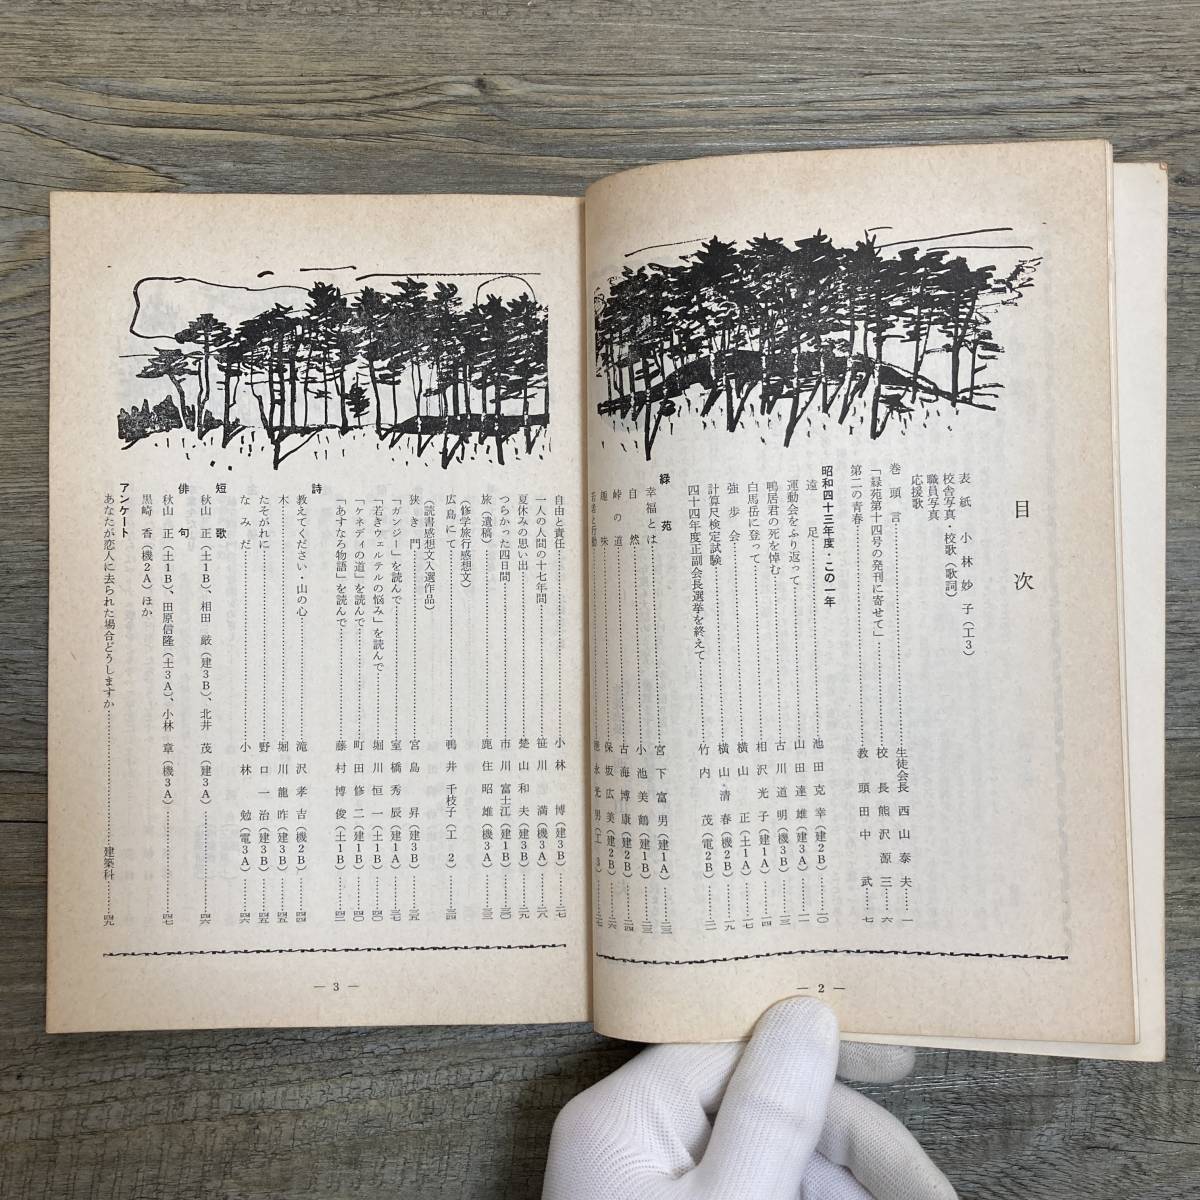 目次
表紙 小林妙子(工3)
校舎写真・校歌(歌詞)
職員写真
応援歌
巻頭言…………生徒会長 西山泰夫……一
「緑苑第十四号の発刊に寄せて」…………校長 熊沢源三……六
第二の青春…………教頭 田中武……七
昭和四十三年度・この一年
遠足…………池田克幸(建2B)……一〇
運動会をふり返って…………山田達雄(建3A)……一一
鴨居君の死を悼む…………古川道明(機3B)……一三
白馬岳に登って…………相沢光子(建1A)……一四
強歩会…………横山正(土1A)……一九
計算尺検定試験…………横山清春(機2B)……
四十四年度正副会長選挙を終えて…………竹内茂(電2B)……
緑苑
幸福とは…………宮下富男(建1A)……
自然…………小池美鶴(建1B)……
峠の道…………古海博康(建2B)……二四
趣味…………保坂広美(建2B)……二六
若者と行動…………徳永光男(工3)……二七
自由と責任…………小林博(建3B)……二七
一人の人間の十七年間…………笹川満(機3A)……二八
夏休みの思い出…………楚山和夫(建3B)……二九
つらかった四日間…………市川富士江(建1B)……三〇
旅(遺稿)…………鹿住昭雄(機3A)……三三
(修学旅行感想文)
広島にて…………鴨井千枝子(工2)……三四
(読書感想文入選作品)
狭き門…………宮島昇(建3B)……三五
「ガンジー」を読んで…………室橋秀辰(建1A)……三七
「若きウェルテルの悩み」を読んで…………堀川恒一(土1B)……四〇
「ケネディの道」を読んで…………町田修二(建1B)……四〇
「あすなろ物語」を読んで…………藤村博俊(土1B)……四二
詩
教えてください・山の心…………滝沢孝吉(機2B)……四四
木…………堀川龍昨(建3B)……四五
たそがれに…………野口一治(建3B)……四五
なみだ…………小林勉(電3A)……四六
短歌
秋山正(土1B)、相田厳(建3B)、北井茂(建3A)……四六
俳句
秋山正(土1B)、田原信隆(土3A)、小林章(機3A)……四七
黒崎香(機2A)ほか
アンケート
あなたが恋人に去られた場合どうしますか…………建築科……四九
— 2 —
— 3 —